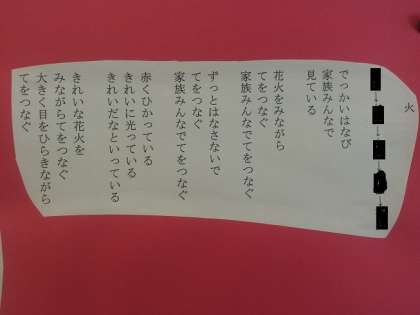 火
でっかいはなび
家族みんなで
見ている
花火をみながら
てをつなぐ
家族みんなでてをつなぐ
ずっとはなさないで
てをつなぐ
家族みんなでてをつなぐ
赤くひかっている
きれいに光っている
きれいだなといっている
きれいな花火を
みながらてをつなぐ
大きく目をひらきながら
てをつなぐ